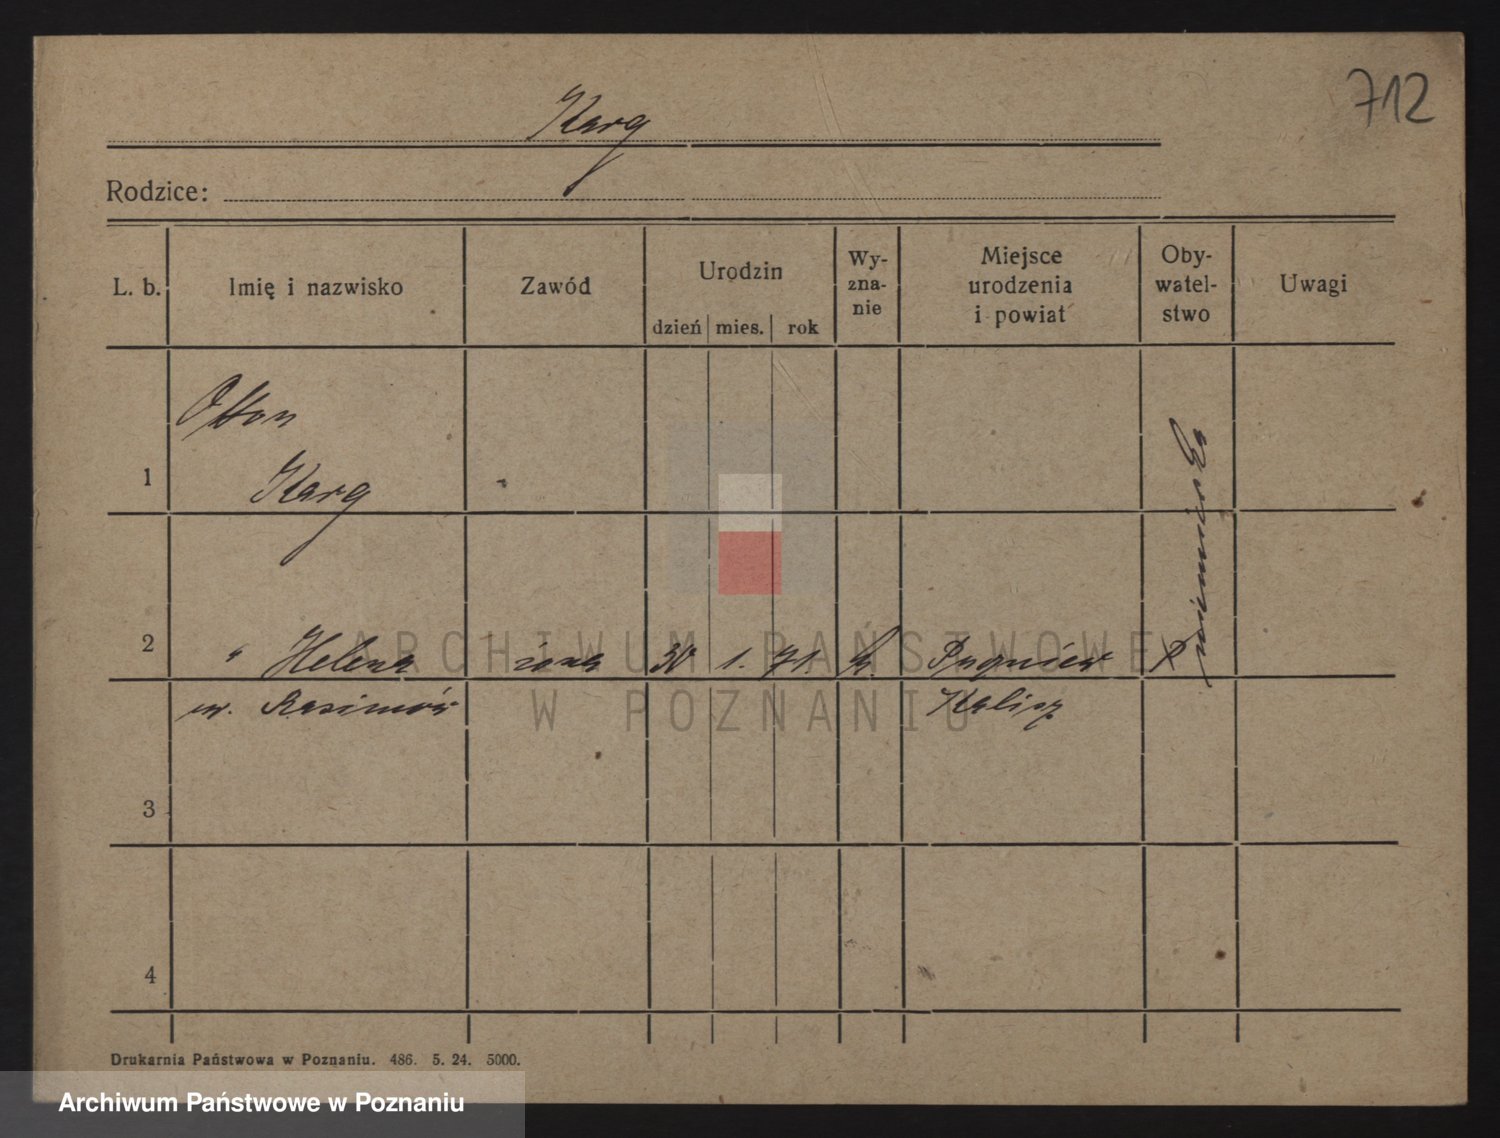 712
Karg
Rodzice:
L. b.
Imię i nazwisko
Zawód
Urodzin
dzień mies. rok
Wy-
zna-
nie
Miejsce
urodzenia
i powiat
Oby-
watel-
stwo
Uwagi
Otton
1 Karg
niemiecka
2 " Helena żona 30 1. 71. k. P
ur. Kalisz
3
4
ARCHIWUM PAŃSTWOWE
W POZNANIU
Drukarnia Państwowa w Poznaniu. 486. 5. 24. 5000.
Archiwum Państwowe w Poznaniu